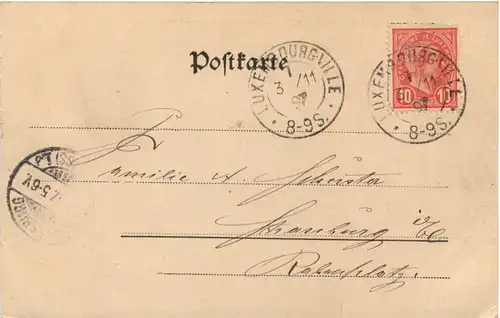 Postkarte
LUXEMBOURG-VILLE
3 1/11 97
8-9S.
LUXEMBOURG-VILLE
1/11 97
8-9S.
10 10
5-6V
Familie A. Schuster
Strassburg i/E
Rabenplatz.